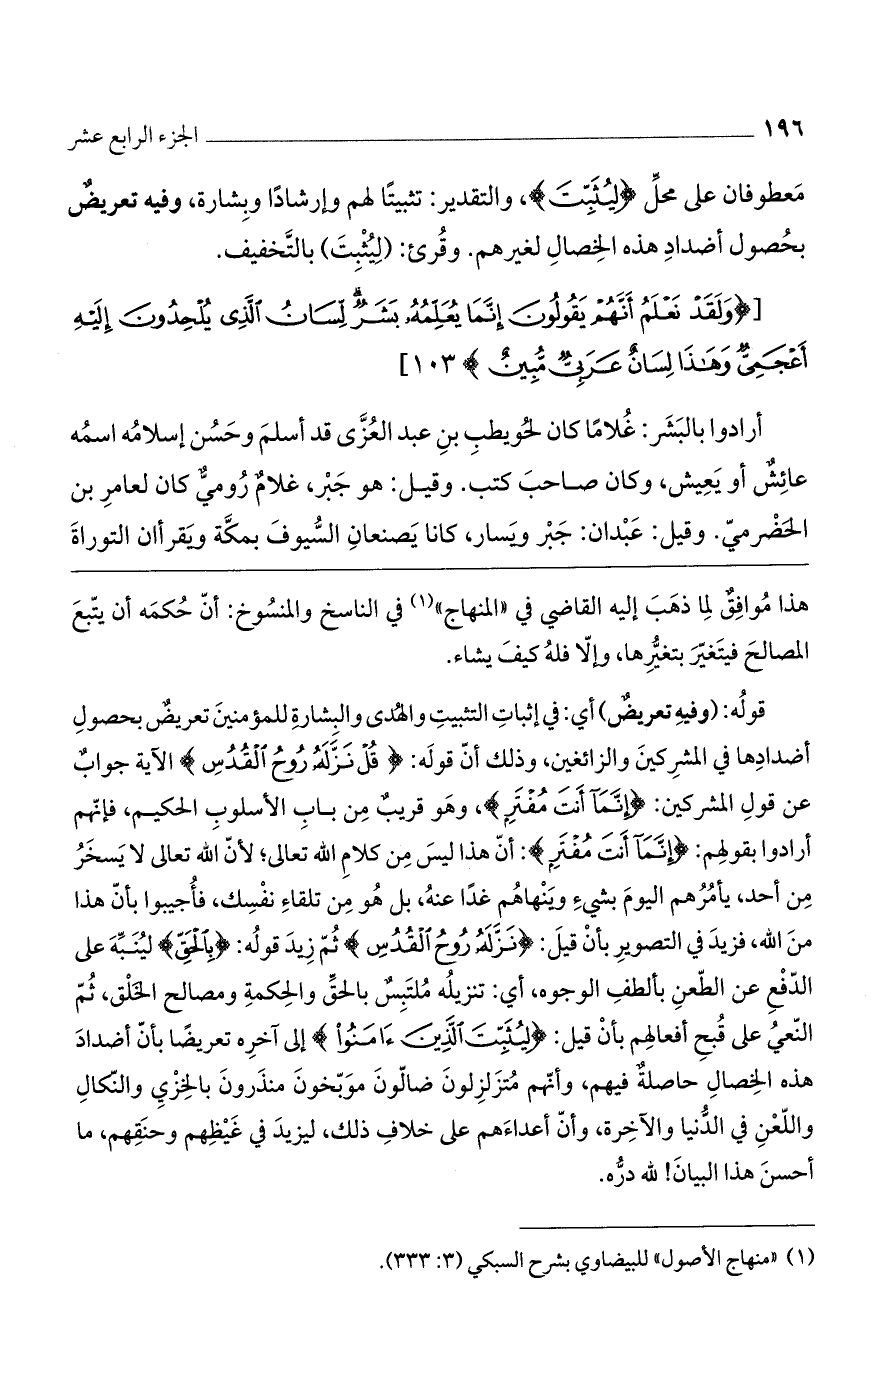 ١٩٦ الجزء الرابع عشر
مَعطوفان على محلِّ ﴿لِيُثَبِّتَ﴾، والتقدير: تثبيتًا لهم وإرشادًا وبِشارة، وفيه تعريضٌ
بحُصول أضدادِ هذه الخِصالِ لغيرهم. وقُرئ: (لِيُثْبِتَ) بالتَّخفيف.
[﴿وَلَقَدْ نَعْلَمُ أَنَّهُمْ يَقُولُونَ إِنَّمَا يُعَلِّمُهُۥ بَشَرٌ ۗ لِّسَانُ ٱلَّذِى يُلْحِدُونَ إِلَيْهِ
أَعْجَمِىٌّ وَهَٰذَا لِسَانٌ عَرَبِىٌّ مُّبِينٌ ﴾ ١٠٣]
أرادوا بالبَشَر: غُلامًا كان لحُويطبِ بنِ عبد العُزَّى قد أسلمَ وحَسُن إسلامُه اسمُه
عائِشٌ أو يَعِيش، وكان صاحبَ كتب. وقيل: هو جَبْر، غلامٌ رُوميٌّ كان لعامرِ بن
الحَضْرميّ. وقيل: عَبْدان: جَبْر ويَسار، كانا يَصنعانِ السُّيوفَ بمكَّة ويَقرأان التوراةَ
هذا مُوافِقٌ لِما ذهَبَ إليه القاضي في «المنهاج»(١) في الناسخ والمنسُوخ: أنّ حُكمَه أن يتّبعَ
المصالحَ فيتَغيّرَ بتغيُّرِها، وإلّا فلهُ كيفَ يشاء.
قولُه: (وفيهِ تعريضٌ) أي: في إثباتِ التثبيتِ والهُدى والبِشارةِ للمؤمنينَ تعريضٌ بحصولِ
أضدادِها في المشرِكينَ والزائغين، وذلك أنّ قولَه: ﴿ قُلْ نَزَّلَهُۥ رُوحُ ٱلْقُدُسِ ﴾ الآية جوابٌ
عن قولِ المشركين: ﴿إِنَّمَآ أَنتَ مُفْتَرٍ﴾، وهَو قريبٌ مِن بابِ الأسلوبِ الحكيم، فإنّهم
أرادوا بقولِهم: ﴿إِنَّمَآ أَنتَ مُفْتَرٍ﴾: أنّ هذا ليسَ مِن كلامِ الله تعالى؛ لأنّ الله تعالى لا يَسخَرُ
مِن أحد، يأمُرُهم اليومَ بشيءٍ ويَنْهاهُم غدًا عنهُ، بل هُو مِن تلقاءِ نفْسِك، فأُجيبوا بأنّ هذا
منَ الله، فزيدَ في التصويرِ بأنْ قيلَ: ﴿نَزَّلَهُۥ رُوحُ ٱلْقُدُسِ ﴾ ثُمّ زِيدَ قولُه: ﴿بِٱلْحَقِّ﴾ ليُنَبِّهَ على
الدّفْعِ عن الطّعنِ بألطفِ الوجوه، أي: تنزيلُه مُلتَبِسٌ بالحقِّ والحِكمةِ ومصالحِ الخَلْق، ثُمّ
النّعيُ على قُبحِ أفعالهِم بأنْ قيل: ﴿لِيُثَبِّتَ ٱلَّذِينَ ءَامَنُوا۟ ﴾ إلى آخرِه تعريضًا بأنّ أضدادَ
هذه الخِصالِ حاصلةٌ فيهم، وأنّهم مُتزَلزِلونَ ضالّونَ موَبّخونَ منذَرونَ بالخِزْيِ والنّكالِ
واللّعْنِ في الدُّنيا والآخِرة، وأنّ أعداءَهم على خلافِ ذلك، ليزيدَ في غَيْظِهم وحنَقِهم، ما
أحسنَ هذا البيانَ! لله درُّه.
(١) «منهاج الأصول» للبيضاوي بشرح السبكي (٣: ٣٣٣).